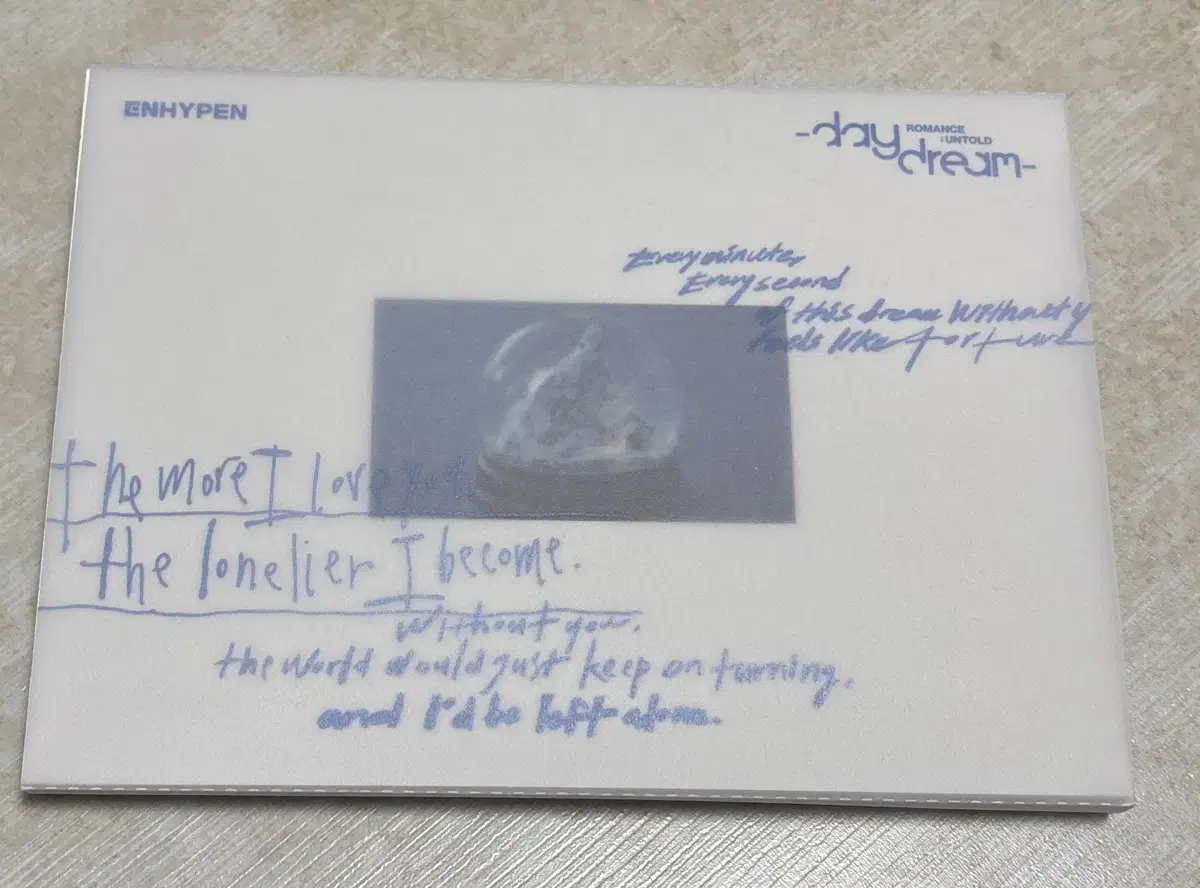 ENHYPEN
-day dream-
ROMANCE
:UNTOLD
Every minute,
Every second
of this dream without y
feels like torture
the more I love you,
the lonelier I become.
without you.
the world would just keep on turning.
and I'd be left alone.